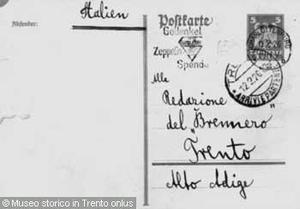 Italien
Absender:
Postkarte
5 5
Gedenket
Zeppelin
Spende
12.2.26
ARRIVI E PARTENZE
Alla
Redazione
del „Brennero"
Trento
Alto Adige
© Museo storico in Trento onlus